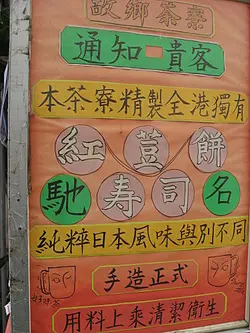 故鄉茶寮
通知 貴客
本茶寮精製全港獨有
紅荳餅
馳寿司名
純粹日本風味與別不同
手造正式
用料上乘清潔衛生